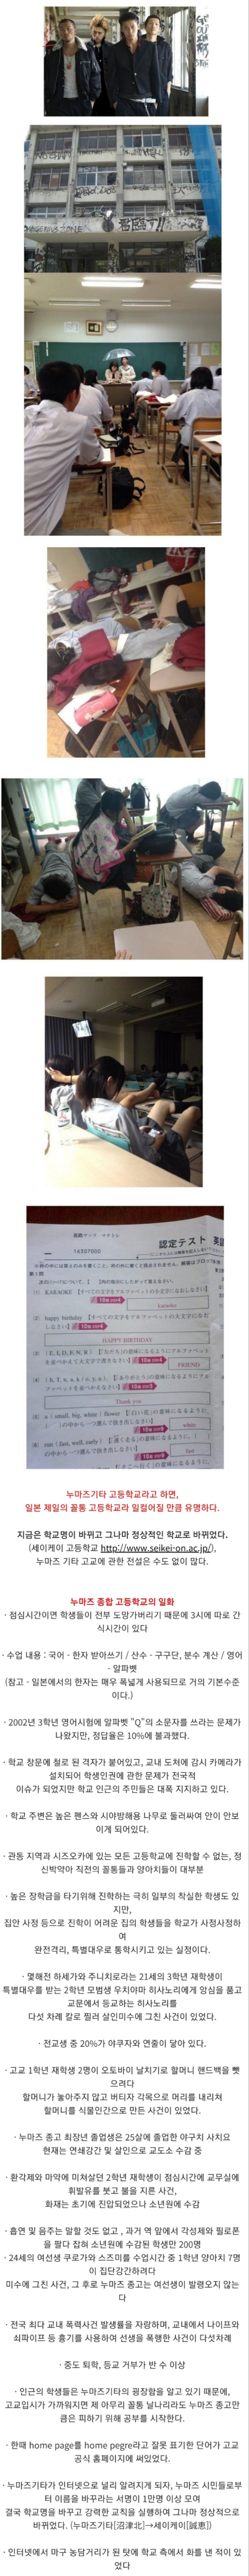 君臨す!!
16307000
認定テスト 英語
(1) KARAOKE
karaoke
(2) happy birthday
HAPPY BIRTHDAY
FRIEND
Thank you
white
fast
누마즈기타 고등학교라고 하면,
일본 제일의 꼴통 고등학교라 일컬어질 만큼 유명하다.
지금은 학교명이 바뀌고 그나마 정상적인 학교로 바뀌었다.
(세이케이 고등학교 http://www.seikei-on.ac.jp/),
누마즈 기타 고교에 관한 전설은 수도 없이 많다.
누마즈 종합 고등학교의 일화
· 점심시간이면 학생들이 전부 도망가버리기 때문에 3시에 따로 간
식시간이 있다
· 수업 내용 : 국어 - 한자 받아쓰기 / 산수 - 구구단, 분수 계산 / 영어
- 알파벳
(참고 - 일본에서의 한자는 매우 폭넓게 사용되므로 거의 기본수준
이다.)
· 2002년 3학년 영어시험에 알파벳 "Q"의 소문자를 쓰라는 문제가
나왔지만, 정답율은 10%에 불과했다.
· 학교 창문에 철로 된 격자가 붙어있고, 교내 도처에 감시 카메라가
설치되어 학생인권에 관한 문제가 전국적
이슈가 되었지만 학교 인근의 주민들은 대폭 지지하고 있다.
· 학교 주변은 높은 펜스와 시야방해용 나무로 둘러싸여 안이 안보
이게 되어있다.
· 관동 지역과 시즈오카에 있는 모든 고등학교에 진학할 수 없는, 정
신박약아 직전의 꼴통들과 양아치들이 대부분
· 높은 장학금을 타기위해 진학하는 극히 일부의 착실한 학생도 있
지만,
집안 사정 등으로 진학이 어려운 집의 학생들을 학교가 사정사정하
여
완전격리, 특별대우로 통학시키고 있는 실정이다.
· 몇해전 하세가와 주니치로라는 21세의 3학년 재학생이
특별대우를 받는 2학년 모범생 우치야마 히사노리에게 앙심을 품고
교문에서 등교하는 히사노리를
다섯 차례 칼로 찔러 살인미수에 그친 사건이 있었다.
· 전교생 중 20%가 야쿠자와 연줄이 닿아 있다.
· 고교 1학년 재학생 2명이 오토바이 날치기로 할머니 핸드백을 뺏
으려다
할머니가 놓아주지 않고 버티자 각목으로 머리를 내리쳐
할머니를 식물인간으로 만든 사건이 있었다.
· 누마즈 종고 최장년 졸업생은 25살에 졸업한 야구치 사치요
현재는 연쇄강간 및 살인으로 교도소 수감 중
· 환각제와 마약에 미쳐살던 2학년 재학생이 점심시간에 교무실에
휘발유를 붓고 불을 지른 사건,
화재는 초기에 진압되었으나 소년원에 수감
· 흡연 및 음주는 말할 것도 없고 , 과거 역 앞에서 각성제와 필로폰
을 팔다 잡혀 소년원에 수감된 학생만 200명
· 24세의 여선생 쿠로가와 스즈미를 수업시간 중 1학년 양아치 7명
이 집단강간하려다
미수에 그친 사건, 그 후로 누마즈 종고는 여선생이 발령오지 않는
다
· 전국 최다 교내 폭력사건 발생률을 자랑하며, 교내에서 나이프와
쇠파이프 등 흉기를 사용하여 선생을 폭행한 사건이 다섯차례
· 중도 퇴학, 등교 거부가 반 수 이상
· 인근의 학생들은 누마즈기타의 굉장함을 알고 있기 때문에,
고교입시가 가까워지면 제 아무리 꼴통 날나리라도 누마즈 종고만
큼은 피하기 위해 공부를 시작한다.
· 한때 home page를 home pegre라고 잘못 표기한 단어가 고교
공식 홈페이지에 써있었다.
· 누마즈기타가 인터넷으로 널리 알려지게 되자, 누마즈 시민들로부
터 이름을 바꾸라는 서명이 1만명 이상 모여
결국 학교명을 바꾸고 강력한 교칙을 실행하여 그나마 정상적으로
바뀌었다. (누마즈기타[沼津北]→세이케이[誠恵])
· 인터넷에서 마구 농담거리가 된 탓에 학교 측에서 화를 낸 적이 있
었다